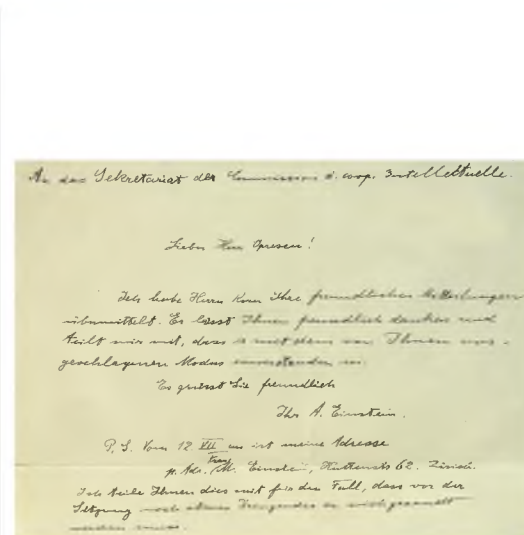 An das Sekretariat der Commission d. coop. Intellectuelle.
Lieber Herr Opresen!
Ich habe Herrn Korn Ihre freundlichen Mitteilungen
übermittelt. Er lässt Ihnen freundlich danken und
teilt mir mit, dass er mit dem von Ihnen vor-
geschlagenen Modus einverstanden sei.
Es grüsst Sie freundlich
Ihr A. Einstein.
P. S. Vom 12. VII an ist meine Adresse
p. Adr. Frau M. Einstein, Huttenstr 62. Zürich.
Ich teile Ihnen dies mit für den Fall, dass vor der
Sitzung noch etwas Dringendes an mich gesandt
werden muss.